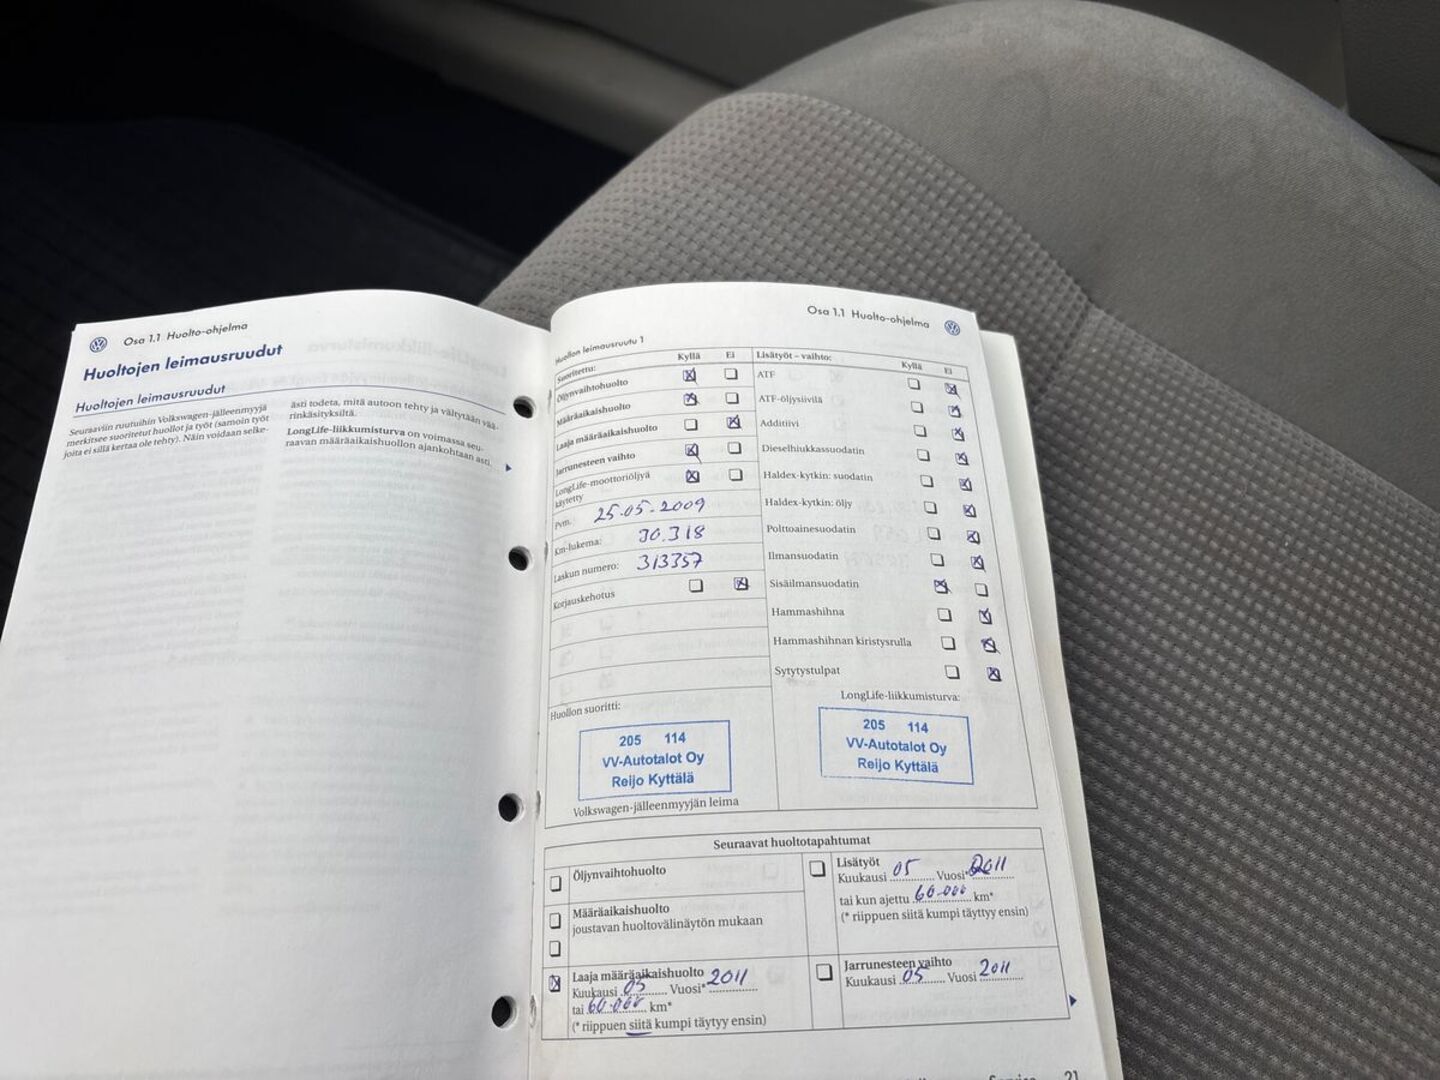 Osa 1.1 Huolto-ohjelma
Huoltojen leimausruudut
Huoltojen leimausruudut
Seuraaviin ruutuihin Volkswagen-jälleenmyyjä
merkitsee suoritetut huollot ja työt (samoin työt
joita ei sillä kertaa ole tehty). Näin voidaan selke-
ästi todeta, mitä autoon tehty ja vältytään vää-
rinkäsityksiltä.
LongLife-liikkumisturva on voimassa seu-
raavan määräaikaishuollon ajankohtaan asti.
Osa 1.1 Huolto-ohjelma
Huollon leimausruutu 1
Suoritettu: Kyllä Ei
Öljynvaihtohuolto
Määräaikaishuolto
Laaja määräaikaishuolto
Jarrunesteen vaihto
LongLife-moottoriöljyä
käytetty
Pvm. 25.05.2009
Km-lukema: 30.318
Laskun numero: 313357
Korjauskehotus
Huollon suoritti:
205 114
VV-Autotalot Oy
Reijo Kyttälä
Volkswagen-jälleenmyyjän leima
Lisätyöt – vaihto: Kyllä Ei
ATF
ATF-öljysiivilä
Additiivi
Dieselhiukkassuodatin
Haldex-kytkin: suodatin
Haldex-kytkin: öljy
Polttoainesuodatin
Ilmansuodatin
Sisäilmansuodatin
Hammashihna
Hammashihnan kiristysrulla
Sytytystulpat
LongLife-liikkumisturva:
205 114
VV-Autotalot Oy
Reijo Kyttälä
Seuraavat huoltotapahtumat
Öljynvaihtohuolto
Määräaikaishuolto
joustavan huoltovälinäytön mukaan
Laaja määräaikaishuolto
Kuukausi 05 Vuosi* 2011
tai 60.000 km*
(* riippuen siitä kumpi täytyy ensin)
Lisätyöt
Kuukausi 05 Vuosi* 2011
tai kun ajettu 60.000 km*
(* riippuen siitä kumpi täyttyy ensin)
Jarrunesteen vaihto
Kuukausi 05 Vuosi 2011
21